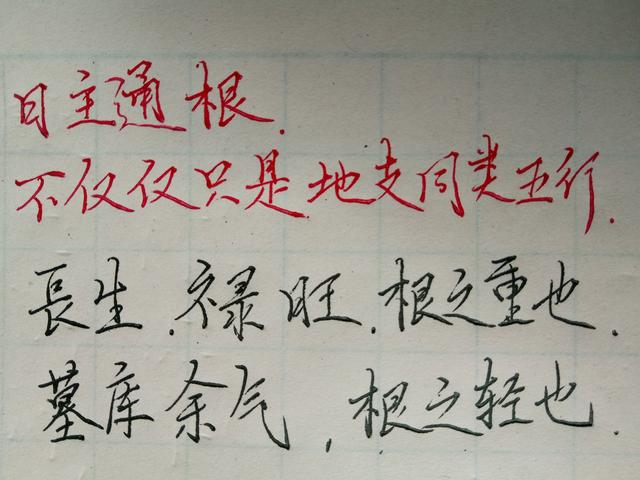 日主通根.
不仅仅只是地支同类五行.
長生.禄旺.根之重也.
墓库余气,根之轻也.